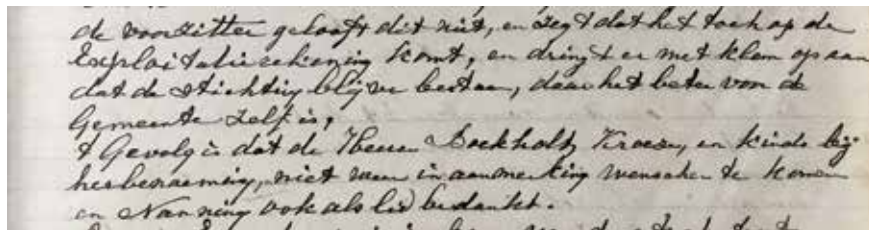 de voorzitter gelooft dit niet, en zegt dat het toch op de
Exploitatierekening komt, en dringt er met klem op aan
dat de stichting blijve bestaan, daar het beter voor de
Gemeente zelf is,
't Gevolg is dat de Heeren Boekholt, Kroeze, en Kinds bij
herbenoeming, niet weer in aanmerking wenschen te komen
en Nanning ook als lid bedankt.